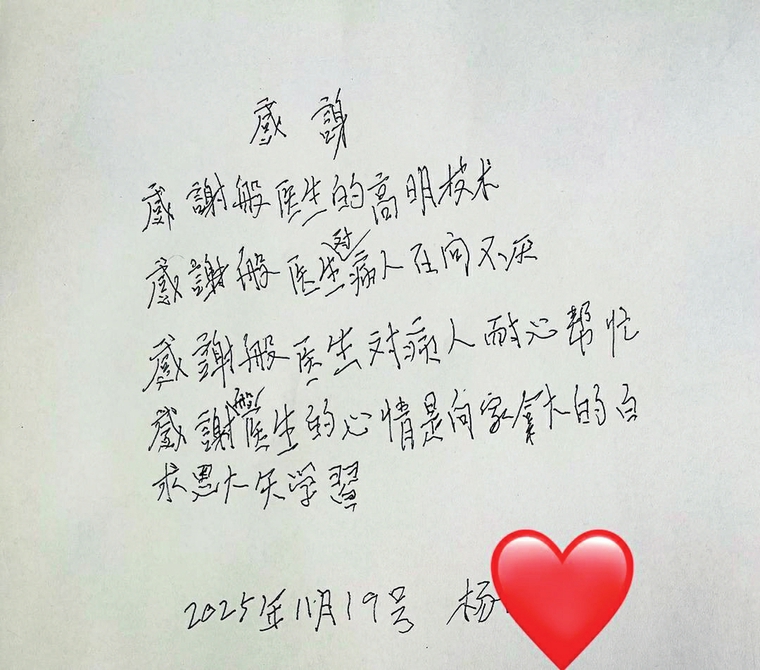 感謝
感謝般医生的高明技术
感謝般医生对病人在向不厌
感謝般医生对病人耐心帮忙
感謝般医生的心情是向家拿大的白
求恩大夫学習
2025年11月19号 杨